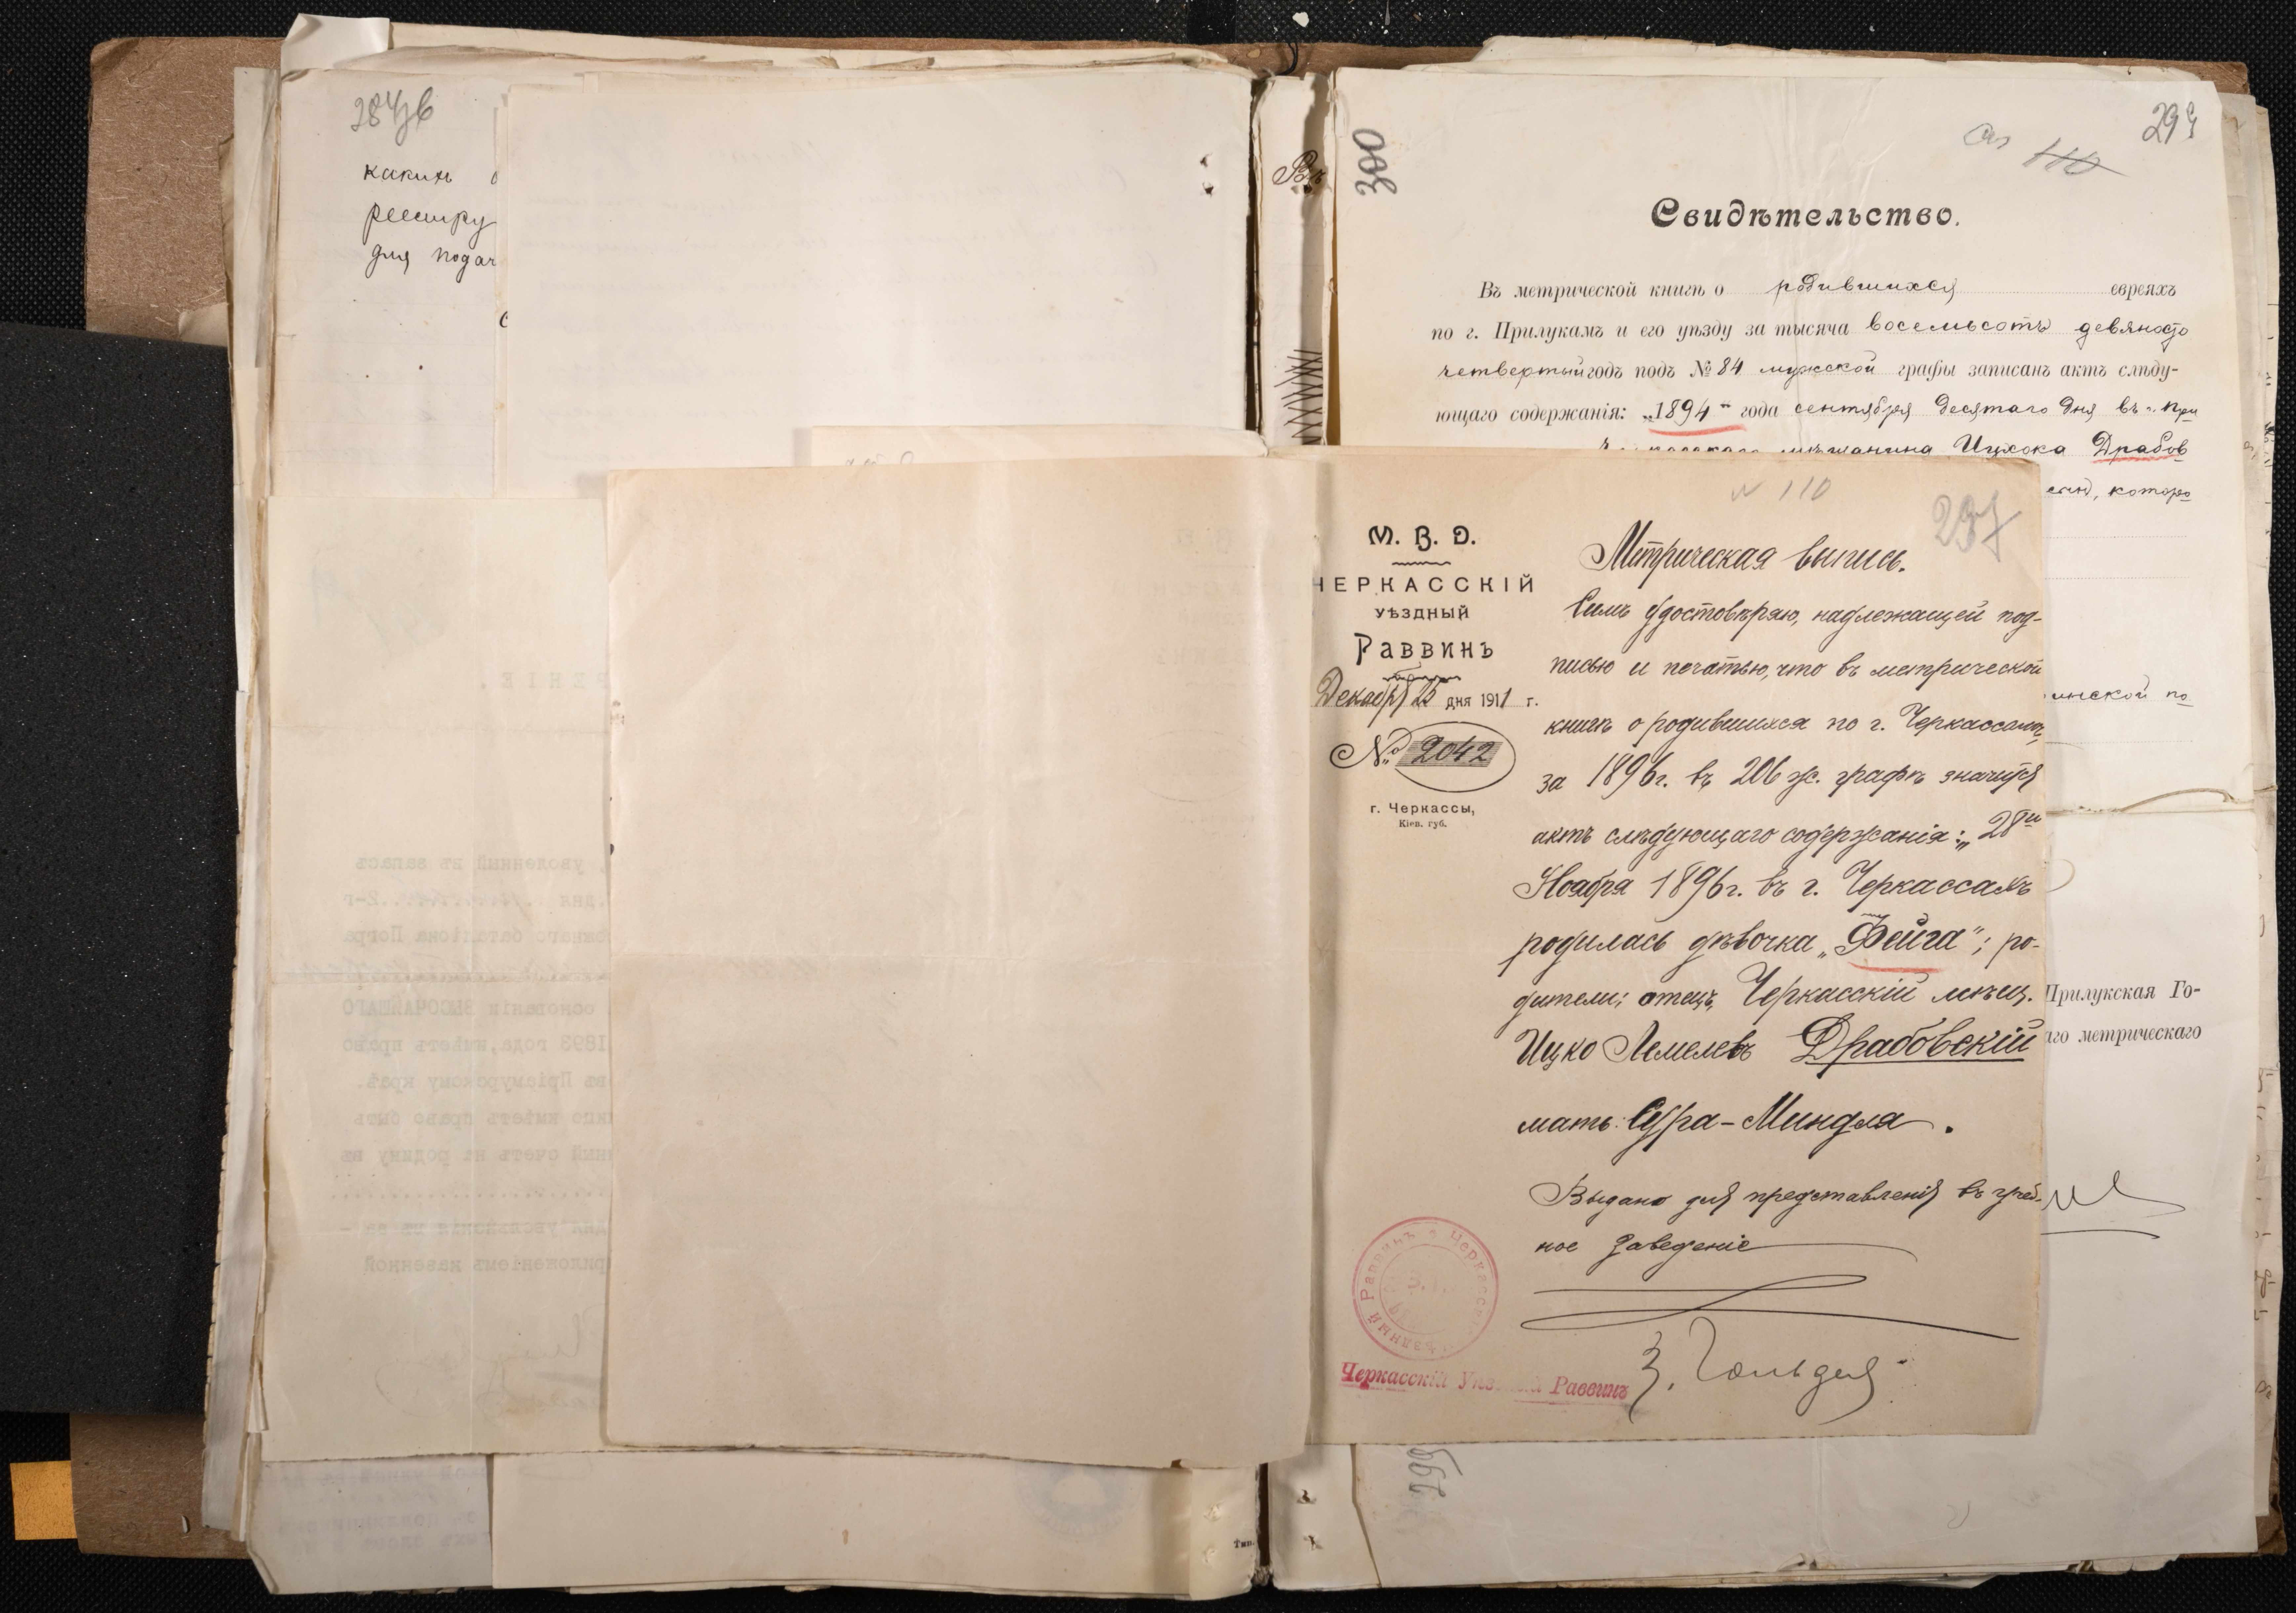 284/в
какихъ
реестру
для подач
Въ
300
299
110
Свидѣтельство.
Въ метрической книгѣ о родившихся евреяхъ
по г. Прилукамъ и его уѣзду за тысяча восемьсотъ девяносто
четвертый годъ подъ № 84 мужской графы записанъ актъ слѣду-
ющаго содержанія: „1894" года сентября десятаго дня въ г. При
мѣщанина Ицхока Драбов
сынъ, которо
инской по
Прилукская Го-
аго метрическаго
№ 110
297
М. В. Д.
ЧЕРКАССКІЙ
УѢЗДНЫЙ
Раввинъ
Декабря дня 1911 г.
№ 2042
г. Черкассы,
Кіев. губ.
Метрическая выпись.
Симъ удостовѣряю, надлежащей под-
писью и печатью, что въ метрической
книгѣ о родившихся по г. Черкассамъ,
за 1896 г. въ 206 ж. графѣ значится
актъ слѣдующаго содержанія: „28го
Ноября 1896 г. въ г. Черкассахъ
родилась дѣвочка „Фейга"; ро-
дители: отецъ, Черкасскій мѣщ.
Ицко Лемелевъ Драбовскій
мать: Сура-Миндля.
Выдано для представленія въ учеб-
ное заведеніе
Уѣздный Раввинъ г. Черкассы
Черкасскій Уѣздный Раввинъ
299